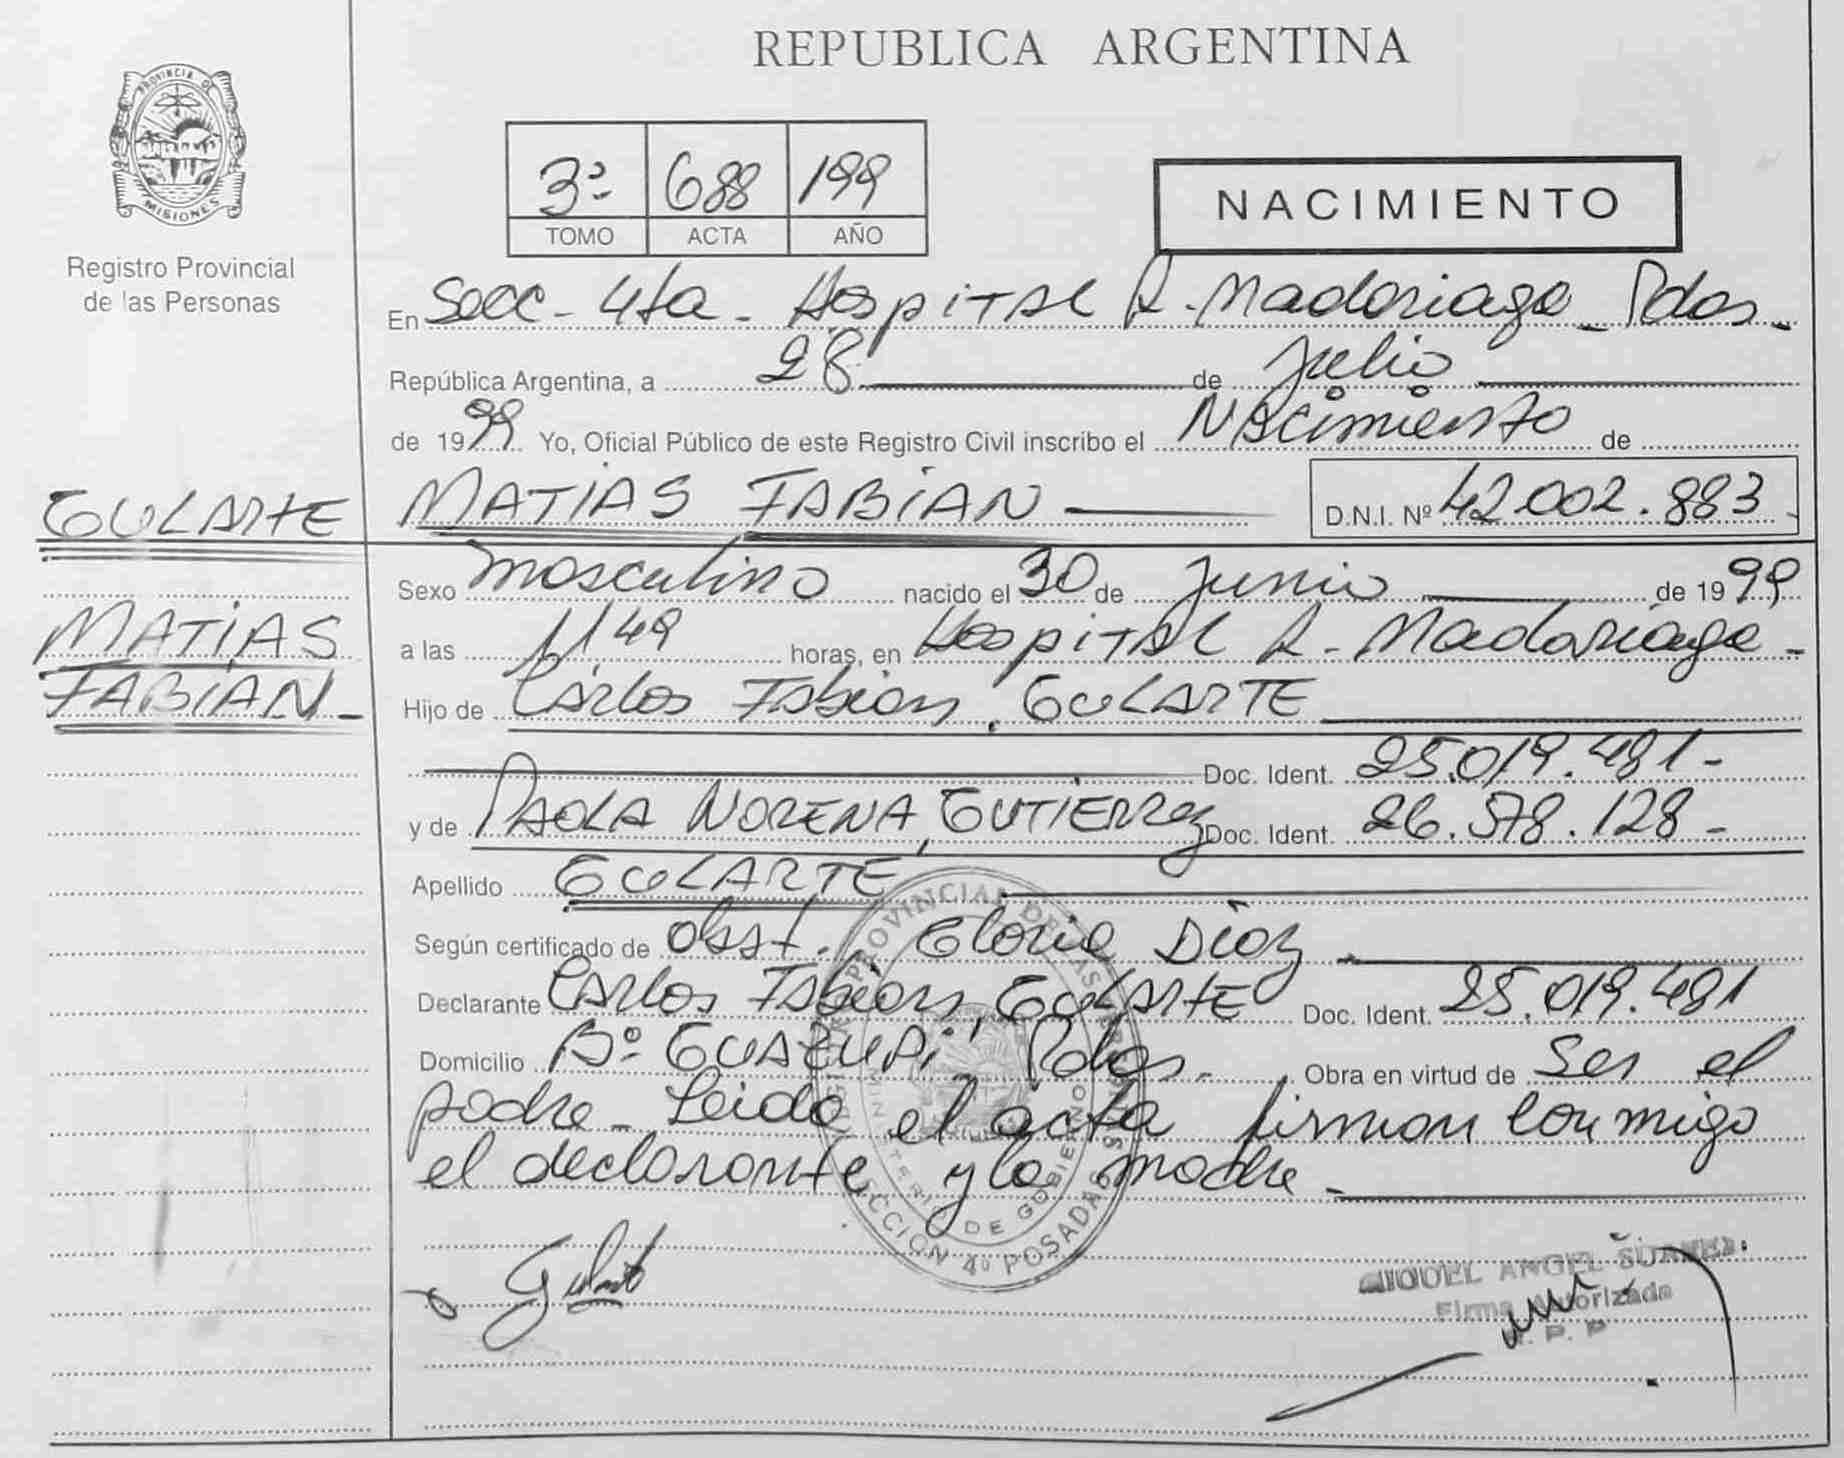 REPUBLICA ARGENTINA
PROVINCIA DE
MISIONES
Registro Provincial
de las Personas
3º 688 199
TOMO ACTA AÑO
NACIMIENTO
En Secc- 4ta- Hospital R. Madariaga- Pdas-
República Argentina, a 28 de Julio
de 1999 Yo, Oficial Público de este Registro Civil inscribo el Nacimiento de
GULARTE MATIAS FABIAN D.N.I. Nº 42.002.883
Sexo masculino nacido el 30 de Junio de 1999
MATIAS a las 11,49 horas, en Hospital R. Madariaga-
FABIAN- Hijo de Carlos Fabian, GULARTE
Doc. Ident. 25.019.481-
y de PAOLA NORENA, GUTIERREZ Doc. Ident. 26.578.128-
Apellido GULARTE
Según certificado de Obst. Gloria Diaz
Declarante Carlos Fabian, GULARTE Doc. Ident. 25.019.481
Domicilio Bº Pdas- Obra en virtud de Ser el
padre- Leida el acta firman conmigo
el declarante y la madre-
PROVINCIAL DE LAS PERSONAS
MINISTERIO DE GOBIERNO
SECCION 4º POSADAS
MIGUEL ANGEL SUAREZ
Firma Autorizada